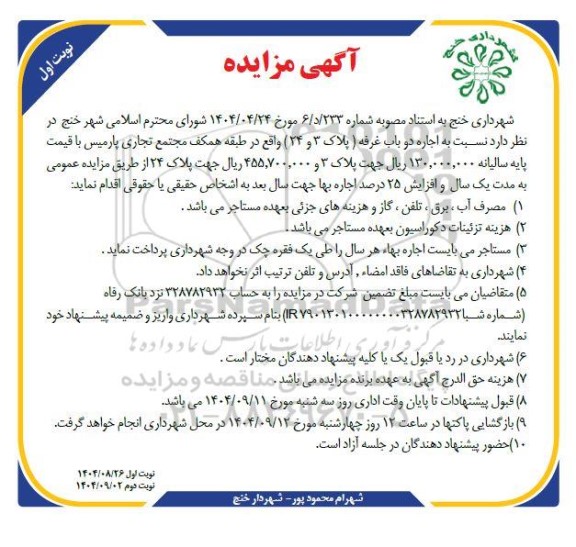 نوبت اول
آگهی مزایده
شهرداری خنج
شهرداری خنج به استناد مصوبه شماره ۲۳۳/د/۶ مورخ ۱۴۰۴/۰۴/۲۴ شورای محترم اسلامی شهر خنج در
نظر دارد نسبت به اجاره دو باب غرفه ( پلاک ۳ و ۲۴ ) واقع در طبقه همکف مجتمع تجاری پارمیس با قیمت
پایه سالیانه ۱۳۰,۰۰۰,۰۰۰ ریال جهت پلاک ۳ و ۴۵۵,۷۰۰,۰۰۰ ریال جهت پلاک ۲۴ از طریق مزایده عمومی
به مدت یک سال و افزایش ۲۵ درصد اجاره بها جهت سال بعد به اشخاص حقیقی یا حقوقی اقدام نماید:
۱) مصرف آب ، برق ، تلفن ، گاز و هزینه های جزئی بعهده مستاجر می باشد .
۲) هزینه تزئینات دکوراسیون بعهده مستاجر می باشد .
۳) مستاجر می بایست اجاره بهاء هر سال را طی یک فقره چک در وجه شهرداری پرداخت نماید .
۴) شهرداری به تقاضاهای فاقد امضاء , آدرس و تلفن ترتیب اثر نخواهد داد.
۵) متقاضیان می بایست مبلغ تضمین شرکت در مزایده را به حساب ۳۲۸۷۸۲۹۳۲ نزد بانک رفاه
(شماره شبا IR۷۹۰۱۳۰۱۰۰۰۰۰۰۰۰۳۲۸۷۸۲۹۳۲) بنام سپرده شهرداری واریز و ضمیمه پیشنهاد خود
نمایند.
۶) شهرداری در رد یا قبول یک یا کلیه پیشنهاد دهندگان مختار است .
۷) هزینه حق الدرج آگهی به عهده برنده مزایده می باشد .
۸) قبول پیشنهادات تا پایان وقت اداری روز سه شنبه مورخ ۱۴۰۴/۰۹/۱۱ می باشد.
۹) بازگشایی پاکتها در ساعت ۱۲ روز چهارشنبه مورخ ۱۴۰۴/۰۹/۱۲ در محل شهرداری انجام خواهد گرفت.
۱۰) حضور پیشنهاد دهندگان در جلسه آزاد است.
نوبت اول ۱۴۰۴/۰۸/۲۶
نوبت دوم ۱۴۰۴/۰۹/۰۲
شهرام محمود پور - شهردار خنج